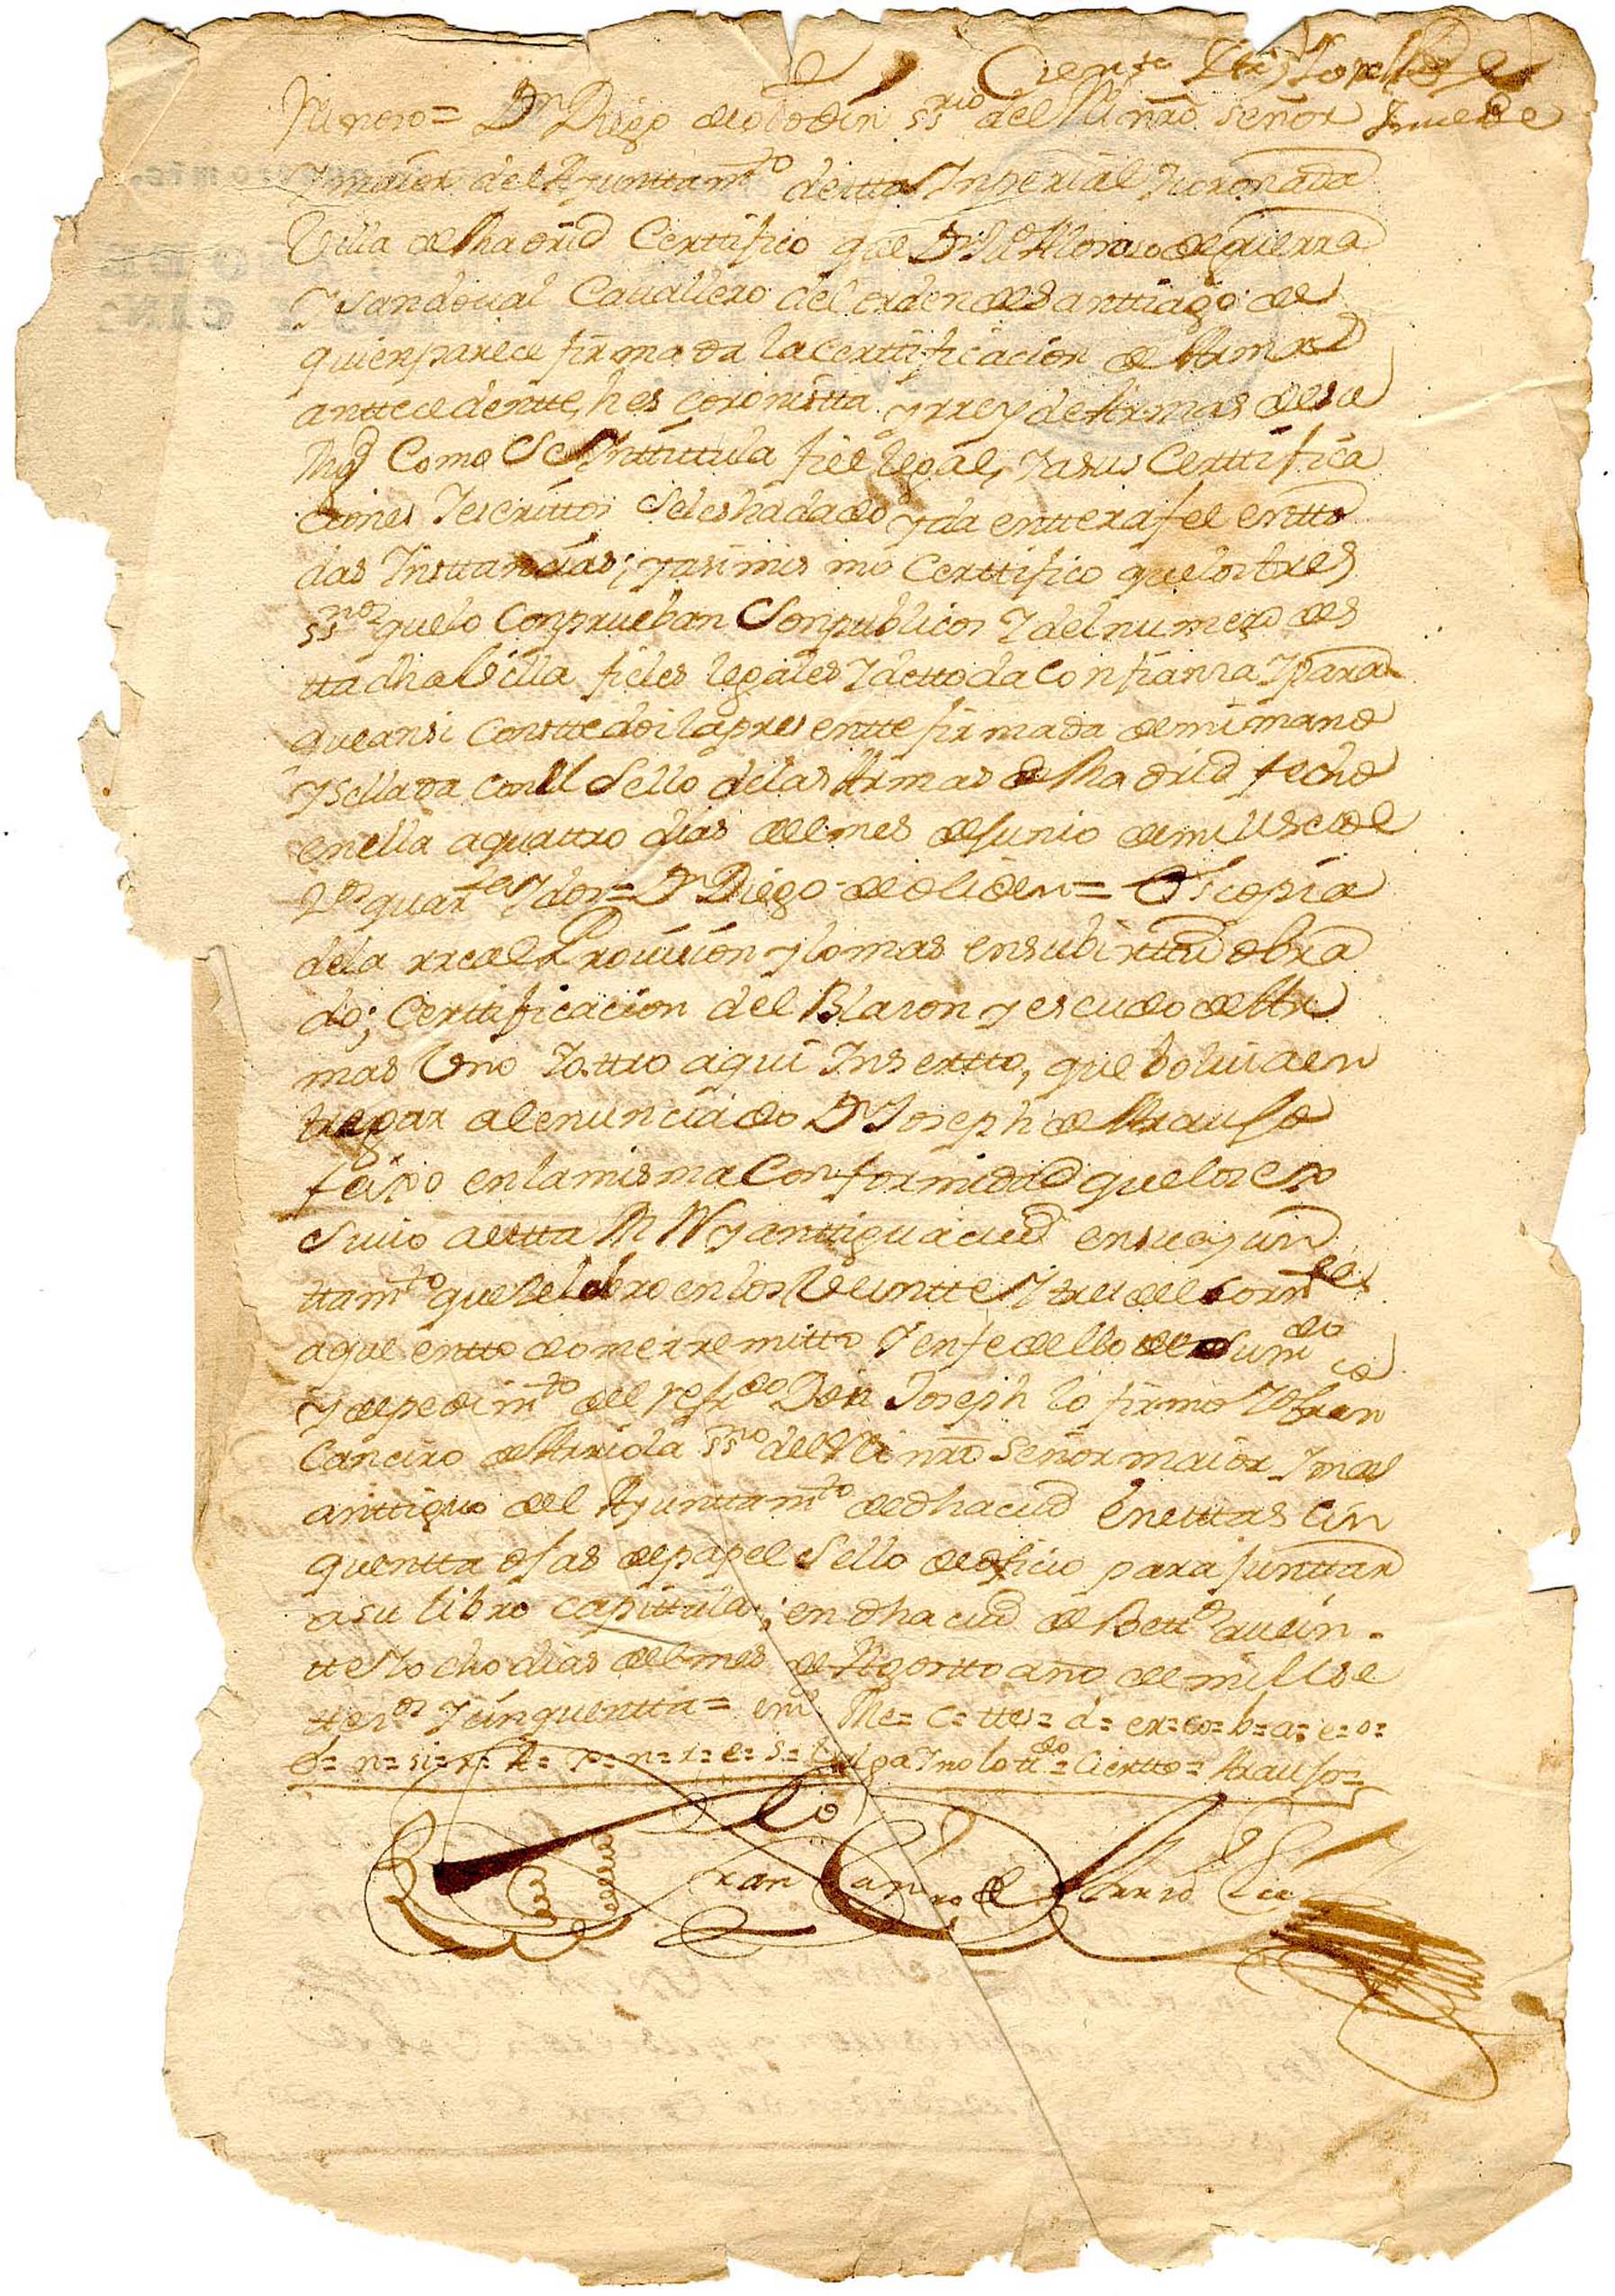 Cientto
Munoso = Dn Diego de ssrio del Rei nro señor
Imaior del Ayunttamto destta Inperial Icoronada
Villa de Madrid Certtifico que Dn Alonso de guerra
Y Sandoual Cauallero del orden de Santtiago de
quien parece firmada la certtificacion de Armas
anttecedentte, hes coronistta y rrey de Armas de su
Mgd Como Se Inttittula fiel legal, Iasus Certtifica
ciones Iescrittos Seles ha dado y da enttera fee entto
das Insttancias; y asimismo Certtifico que los tres
ssnos que lo Conprueban Son publicos I del numero des
tta dha Villa fieles legales I de ttoda Confianza Ipara
que ansi Constte doi la presentte firmada de mi mano
Y Sellada con el Sello de las Armas de Madrid fecho
en ella a quattro dias del mes de Junio de mill Sette
zos quarta Idos = Dn Diego de = Es copia
de la rreal Prouision y lo mas en su birttud obra
do; Certtificacion del Blason y escudo de Ar
mas Uno Iottro aqui Insertto, que bolui a en
tregar al enunciado Dn Joseph de Araujo
feijoo en la misma Conformidad que los ex
Siuio a estta M N y anttigua ciud en su ayun
ttamto que Zelebro en los Veintte I tres del corrtes
a que en ttodo me rremitto I en fe de ello de su mdo
y de pedimto del refdo Don Joseph lo firmo Io fran
Canciro de Arriola ssno del Rei nro Señor maior I mas
anttiguo del Ayunttamto de dha ciud en esttas cin
quentta ojas de papel Sello de oficio para junttar
a su libro capittular; en dha ciud de Bettos a uein-
tte Iocho dias del mes de Agostto año de mill Se
ttezos I cinquentta = emd Me= c= ttes= d= ex= co= b= a= e= o=
n= si= r= p= n= i= e= s= I no lo ttdo = Cientto= Araujo=
fran Canro de Arriola